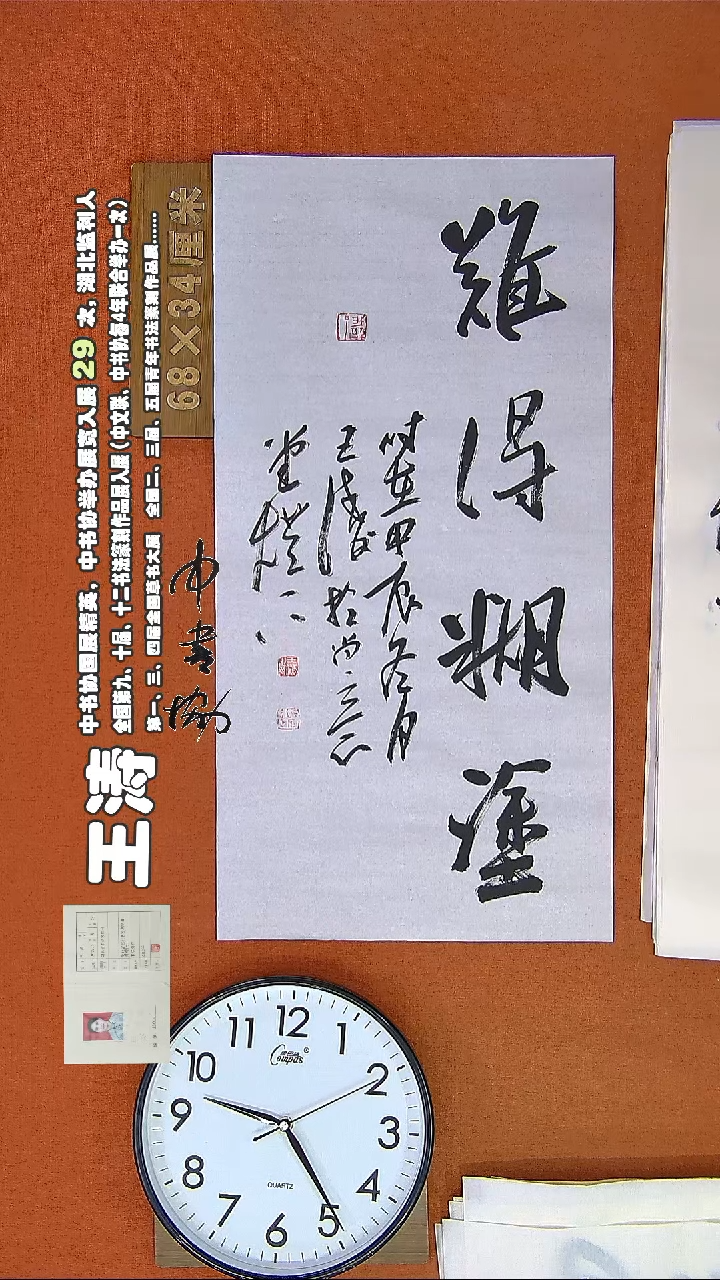 難得糊塗
时在甲辰冬月
王涛书于尚
王涛
中书协国展精英，中书协举办展览入展 29 次，湖北监利人
全国第九、十届、十二书法篆刻作品展入展（中文联、中书协每4年联合举办一次）
第一、三、四届全国草书大展 全国二、三届、五届青年书法篆刻作品展......
中书协
68×34厘米
12
1
2
3
4
5
6
7
8
9
10
11
Compas
QUARTZ